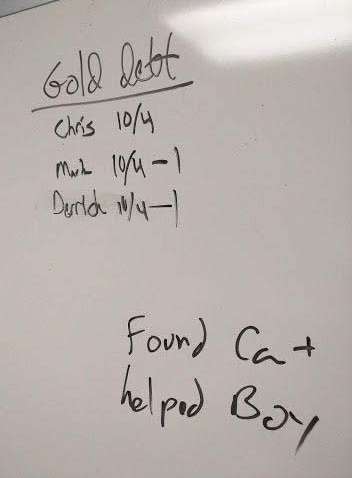 Gold debt
Chris 10/4
Mark 10/4-1
Derrick 10/4-1
Found Cat
helped Boy